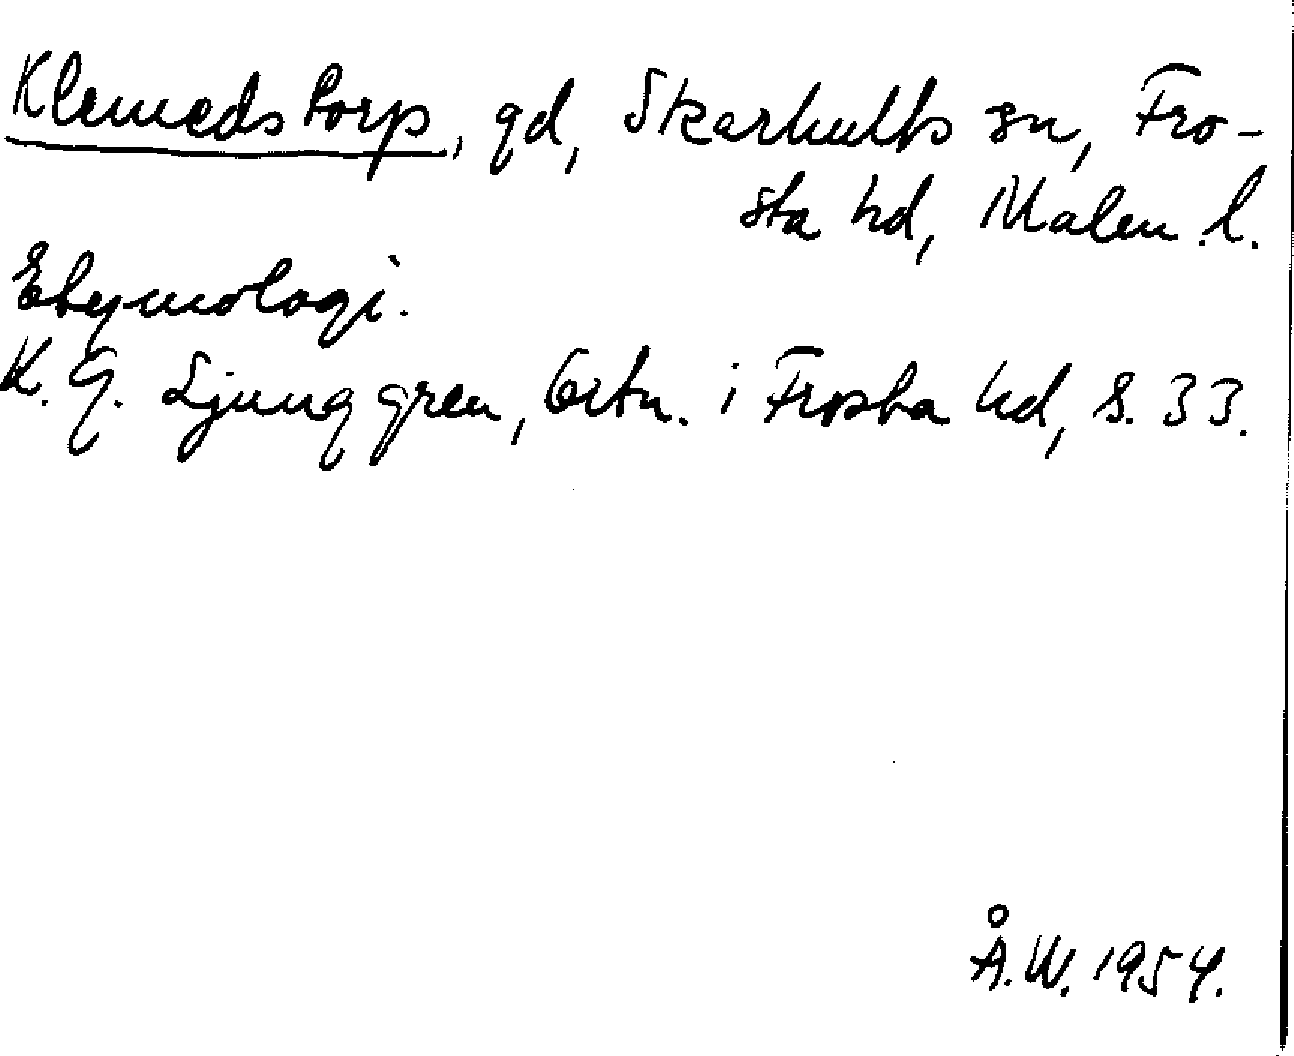 Klemedstorp, gd, Skarhults sn, Fro-
sta hd, Malm. l.
Etymologi.
K. G. Ljunggren, Ortn. i Frosta hd, s. 33.
Å.W. 1954.